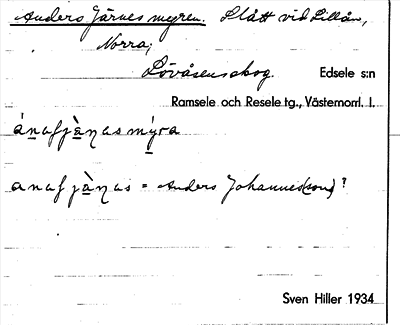 Anders Järnes myren. Slått vid Lillån,
Norra,
Lövåsens skog. Edsele s:n
Ramsele och Resele tg., Västernorrl. l.
= Anders Johannes(son)?
Sven Hiller 1934